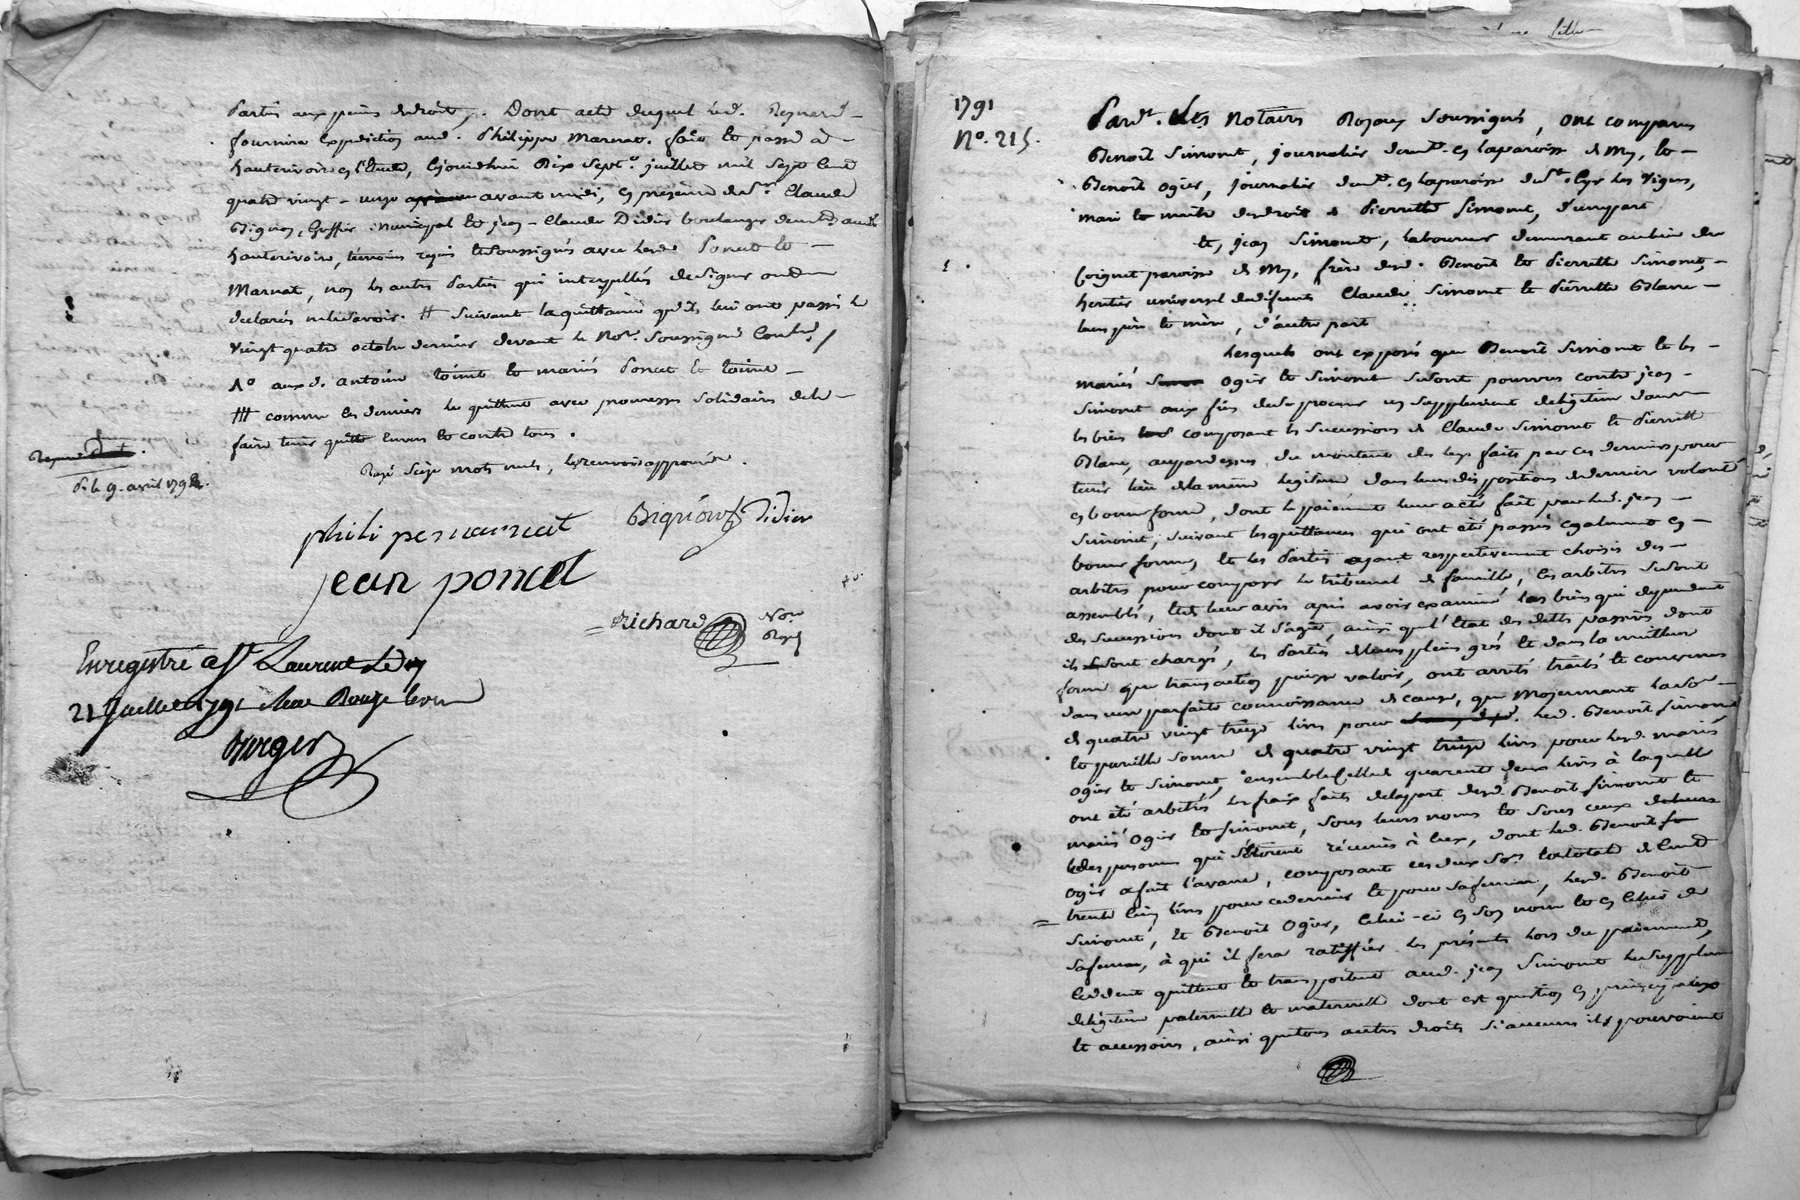 parties aux peines de droit. Dont acte duquel led. Reynard
fournira expedition aud. Philippe Marnat. fait et passé à
hauterivoire en l'Etude, ce jourdhui dix sept juillet mil sept cent
quatre vingt - onze avant midi, en présence de Sr. Claude
Bignon, Greffier municipal et jean - Claude Didier boulanger demeurt. aud.
hauterivoire, témoins requis et soussignés avec lesd. Poncet et
Marnat, non les autres parties qui interpellées de signer ont
déclarés ne le savoir. # suivant la quittance qu'ils lui ont passé le
vingt quatre octobre dernier devant le Nore. soussigné Controlé /
aux d. antoine et mariés Poncet et
comme ces derniers le quittent avec promesses solidaire de le
faire tenir quitte envers et contre tous.
Rayé seize mots nuls, les renvois approuvés.
9. avril 1792.
Bignion Didier
philipe marnat
jean poncet
Richard Nore
Royal
Enregistré a St. Laurent le
21 juillet 1791
1791
No. 215.
Pardt. les Notaires Royaux soussignés, ont comparus
Benoit Simonet, journalier demt. en la paroisse de My, et
Benoit Ogier, journalier demt. en la paroisse de St. Cyr les Vignes,
mari et maitre des droits de Pierrette Simonet, d'une part
et, jean Simonet, laboureur demeurant au lieu de
Coignet paroisse de My, frère desd. Benoit et Pierrette Simonet,
heritier universel de défunts Claude Simonet et Pierrette Blanc
leurs père et mère, d'autre part
Lesquels ont exposés que Benoit Simonet et les
mariés Ogier et Simonet se sont pourvus contre jean
Simonet aux fins de se procurer un supplement de légitime dans
les biens composant les successions de Claude Simonet et Pierrette
Blanc, au par dessus du montant des legs faits par ces derniers pour
tenir lieu de la même légitime dans leurs dispositions de dernière volonté
en bonne forme, dont le paiement leur a été fait par led. jean
Simonet, suivant les quittances qui ont été passés également en
bonne forme, et les parties ayant respectivement choisis des
arbitres pour composer le tribunal de famille, ces arbitres se sont
assemblés, et de leur avis après avoir examiné les biens qui dependent
des successions dont il s'agit, ainsi que l'état des dettes passives dont
ils sont chargés, les parties de leurs pleins grés et dans la meilleure
forme que transaction puisse valoir, ont arrêté traité et convenus
dans une parfaite connoissance de cause, que moyennant la somme
de quatre vingt treize livres pour led. Benoit Simonet
et pareille somme de quatre vingt treize livres pour lesd. mariés
Ogier et Simonet, ensemble celle de quarante deux livres à laquelle
ont été arbitrés les fraix faits de la part desd. Benoit Simonet et
mariés Ogier et Simonet, sous leurs noms et sous ceux de leurs
personnes qui s'étoient réunies à eux, dont led. Benoit
Ogier a fait l'avance, composant ces deux sommes la totale de cent
trente cinq livres pour ce dernier et pour sa femme, lesd. Benoit
Simonet, et Benoit Ogier, celui-ci en son nom et en celui de
sa femme, à qui il fera ratiffier les présentes lors du paiement,
cedent quittent et transportent aud. jean Simonet le supplement
de légitime paternelle et maternelle dont est question en principaux
et accessoires, ainsi que tous autres droits si aucuns ils pouvoient